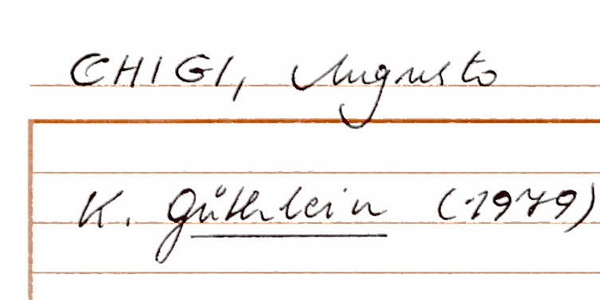 CHIGI, Augusto
K. Güthlein (1979)